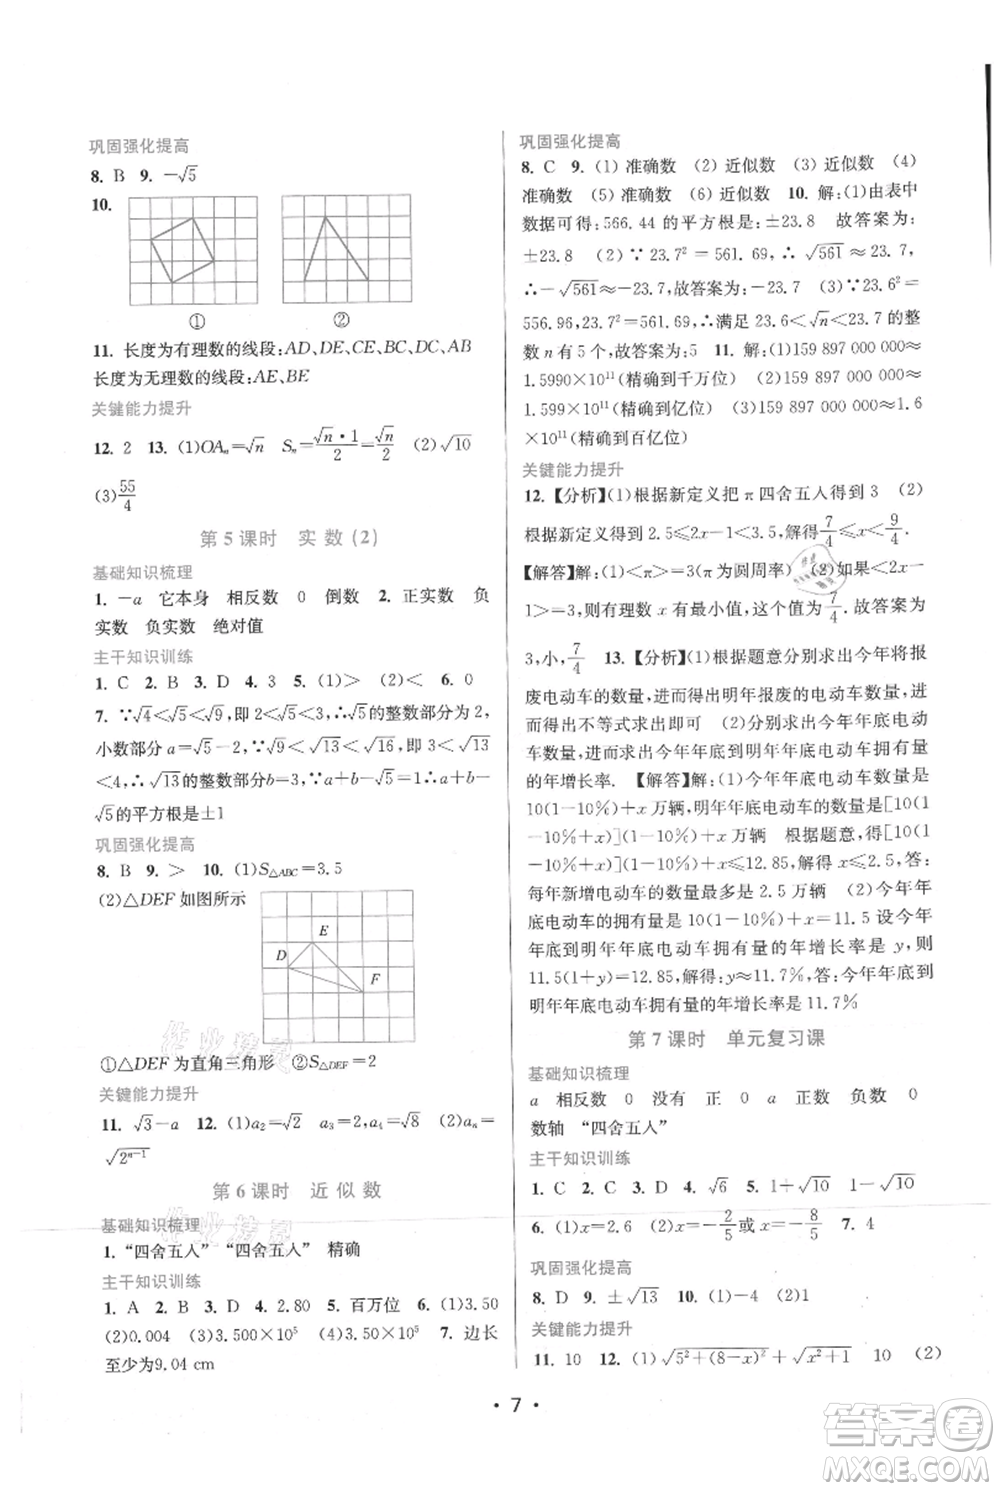 巩固强化提高
8. B 9. －√5
10.
① ②
11. 长度为有理数的线段:AD、DE、CE、BC、DC、AB
长度为无理数的线段:AE、BE
关键能力提升
12. 2 13. (1)OAₙ＝√n Sₙ＝√n·1/2＝√n/2 (2)√10
(3)55/4
第 5 课时 实 数 (2)
基础知识梳理
1. －a 它本身 相反数 0 倒数 2. 正实数 负
实数 负实数 绝对值
主干知识训练
1. C 2. B 3. D 4. 3 5. (1)> (2)< 6. 0
7. ∵√4<√5<√9,即 2<√5<3,∴√5的整数部分为 2,
小数部分 a＝√5－2,∵√9<√13<√16,即 3<√13
<4,∴√13的整数部分 b＝3,∵a＋b＝1∴a＋b－
√5的平方根是±1
巩固强化提高
8. B 9. > 10. (1)S△ABC＝3.5
(2)△DEF 如图所示
E
D
F
①△DEF 为直角三角形 ②S△DEF＝2
关键能力提升
11. √3－a 12. (1)a₂＝√2 a₃＝2,a₄＝√8 (2)aₙ＝
√2ⁿ⁻¹
第 6 课时 近 似 数
基础知识梳理
1. “四舍五入” “四舍五入” 精确
主干知识训练
1. A 2. B 3. D 4. 2.80 5. 百万位 6. (1)3.50
(2)0.004 (3)3.500×10⁵ (4)3.50×10⁵ 7. 边长
至少为9.04 cm
巩固强化提高
8. C 9. (1) 准确数 (2) 近似数 (3) 近似数 (4)
准确数 (5) 准确数 (6) 近似数 10. 解:(1)由表中
数据可得:566.44 的平方根是:±23.8 故答案为:
±23.8 (2)∵ 23.7²＝561.69,∴√561≈23.7,
∴－√561≈－23.7,故答案为:－23.7 (3)∵23.6²＝
556.96,23.7²＝561.69,∴满足 23.6<√n<23.7 的整
数 n 有 5 个,故答案为:5 11. 解:(1)159 897 000 000≈
1.5990×10¹¹(精确到千万位) (2)159 897 000 000≈
1.599×10¹¹(精确到亿位) (3)159 897 000 000≈1.6
×10¹¹(精确到百亿位)
关键能力提升
12.【分析】(1)根据新定义把 π 四舍五入得到 3 (2)
根据新定义得到 2.5≤2x－1<3.5,解得7/4≤x<9/4.
【解答】解:(1)<π>＝3(π为圆周率) (2)如果<2x－
1>＝3,则有理数 x 有最小值,这个值为7/4.故答案为
3,小,7/4 13.【分析】(1)根据题意分别求出今年将报
废电动车的数量,进而得出明年报废的电动车数量,进
而得出不等式求出即可 (2)分别求出今年年底电动
车数量,进而求出今年年底到明年年底电动车拥有量
的年增长率. 【解答】解:(1)今年年底电动车数量是
10(1－10%)＋x 万辆,明年年底电动车的数量是[10(1
－10%)＋x](1－10%)＋x 万辆 根据题意,得[10(1
－10%)＋x](1－10%)＋x≤12.85,解得 x≤2.5,答:
每年新增电动车的数量最多是 2.5 万辆 (2)今年年
底电动车的拥有量是 10(1－10%)＋x＝11.5 设今年
年底到明年年底电动车拥有量的年增长率是 y,则
11.5(1＋y)＝12.85,解得:y≈11.7%,答:今年年底到
明年年底电动车拥有量的年增长率是 11.7%
第 7 课时 单元复习课
基础知识梳理
a 相反数 0 没有 正 0 a 正数 负数 0
数轴 “四舍五入”
主干知识训练
1. C 2. C 3. D 4. √6 5. 1＋√2 1－√2
6. (1)x＝2.6 (2)x＝－2/5或 x＝－8/5 7. 4
巩固强化提高
8. D 9. ±√13 10. (1)－4 (2)1
关键能力提升
11. 10 12. (1)√5²＋(8－x)²＋√x²＋1 10 (2)
· 7 ·
答案卷
MXQE.COM
作业精灵
作业精灵